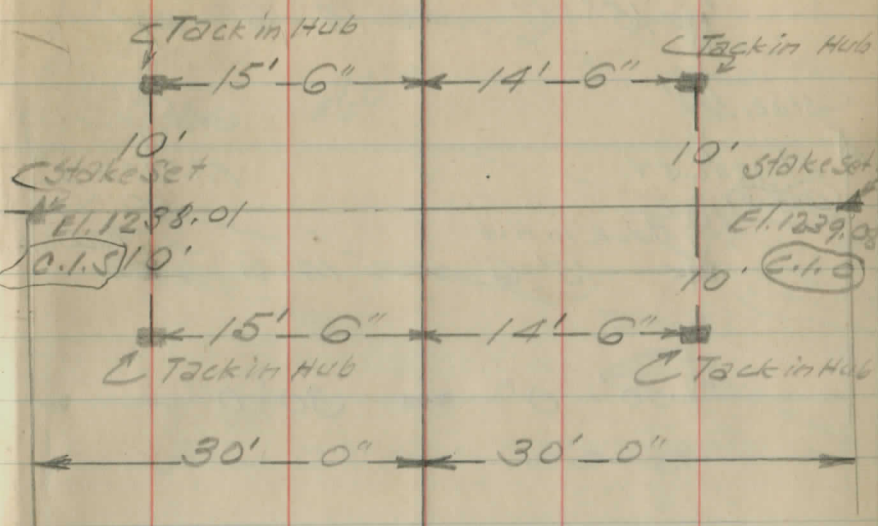 Tack in Hub
Tack in Hub
15'-6" 14'-6"
10' 10'
Stake Set Stake Set
El. 1238.01 El. 1239.08
C.I.S 10' 10'
15'-6" 14'-6"
Tack in Hub Tack in Hub
30'-0" 30'-0"